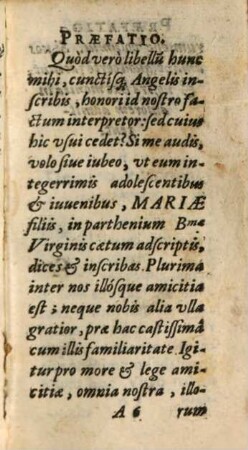 PRÆFATIO.
Quòd verò libellũ hunc
mihi, cunctisq́; Angelis in-
scribis, honori id nostro fa-
ctum interpretor: sed cuius
hic vsui cedet? Si me audis,
volo siue iubeo, vt eum in-
tegerrimis adolescentibus
& iuuenibus, MARIÆ
filiis, in parthenium Bmæ
Virginis cætum adscriptis,
dices & inscribas. Plurima
inter nos illósque amicitia
est; neque nobis alia vlla
gratior, præ hac castissimâ
cum illis familiaritate. Igi-
tur pro more & lege ami-
citiæ, omnia nostra, illo-
A 6 rum